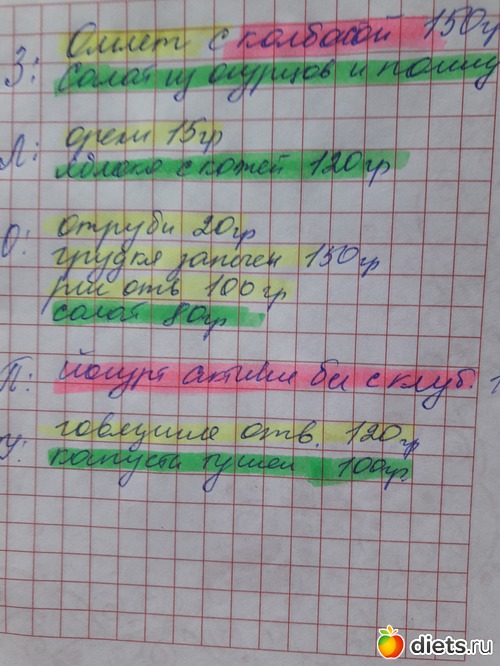 Омлет с колбасой 150г
З: Салат из огурцов и поми
орехи 15гр
Л: яблоко с кожей 120гр
отруби 20гр
О: грудка запечен 150гр
рис отв 100гр
салат 80гр
П: йогурт активиа с клуб. 1
говядина отв. 120гр
У: капуста тушен 100гр
diets.ru